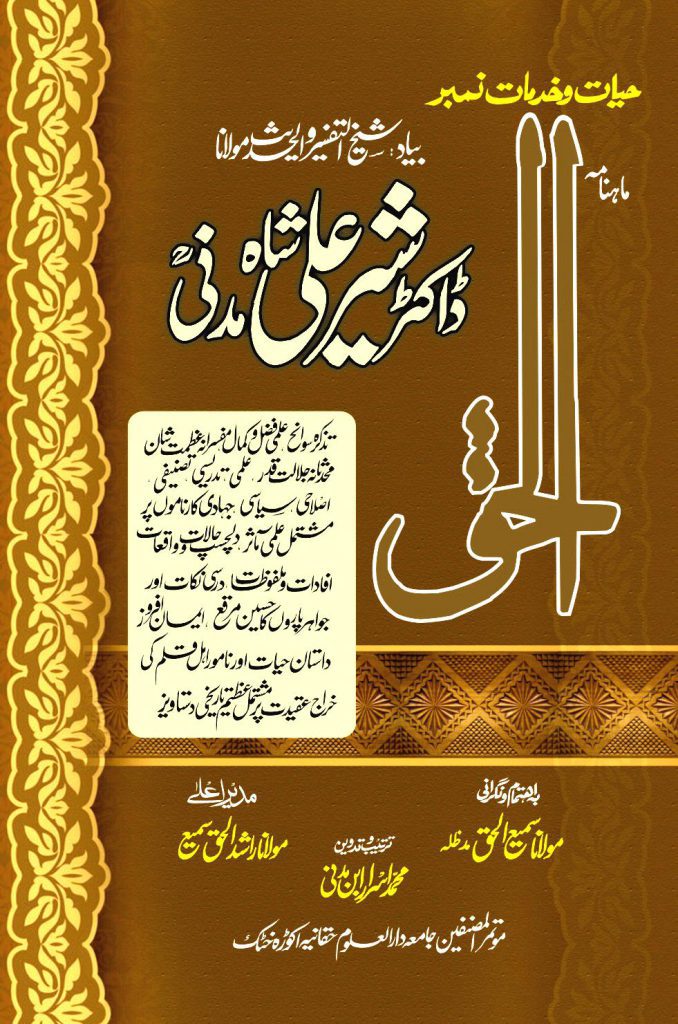 حیات و خدمات نمبر
ماہنامہ
الحق
بیاد: شیخ التفسیر والحدیث مولانا
ڈاکٹر شیر علی شاہ مدنیؒ
تذکرہ سوانح علمی فضل و کمال مفسرانہ عظمت شان
محدثانہ جلالت قدر، علمی، تدریسی، تصنیفی،
اصلاحی، سیاسی، جہادی کارناموں پر
مشتمل علمی مآثر، دلچسپ حالات و واقعات
افادات و ملفوظات، درسی نکات اور
جواہر پاروں کا حسین مرقع، ایمان افروز
داستان حیات اور نامور اہل قلم کی
خراج عقیدت پر مشتمل عظیم تاریخی دستاویز
باہتمام و نگرانی
مولانا سمیع الحق مدظلہ
مدیر اعلےٰ
مولانا راشد الحق سمیع
ترتیب و تدوین
محمد اسرار ابن مدنی
موتمر المصنفین جامعہ دارالعلوم حقانیہ اکوڑہ خٹک